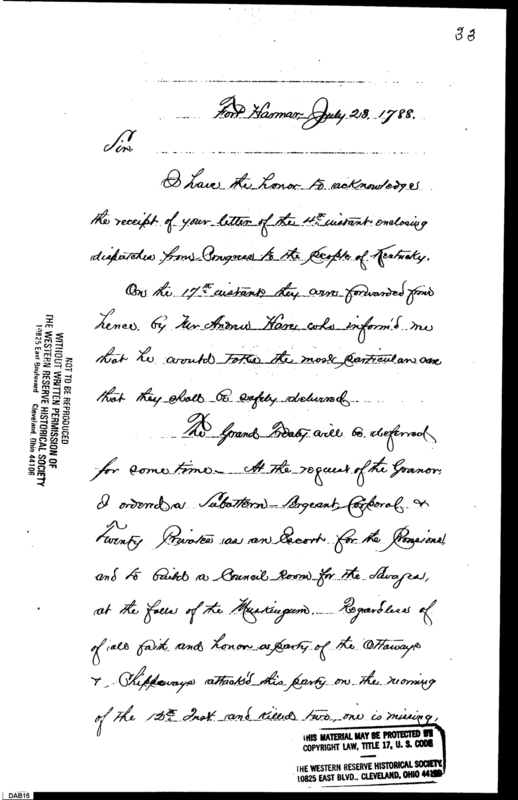 33
Fort Harmar July 28. 1788.
Sir
I have the honor to acknowledge
the receipt of your letter of the 4th instant enclosing
dispatches from Congress to the People of Kentucky.
On the 17th instant they were forwarded from
hence by Mr Andrew Hare who inform'd me
that he would take the most particular care
that they shall be safely delivered
The Grand Treaty will be deferred
for some time — At the request of the Govenor
I ordered a Subaltern — Sergeant, Corporal &
Twenty Privates as an Escort for the Provisions
and to build a Council Room for the Savages,
at the falls of the Muskingum. Regardless of
of all faith and honor a party of the Ottaways
& Chippeways attack'd this party on the morning
of the 12th Inst and killed two, one is missing,
NOT TO BE REPRODUCED
WITHOUT WRITTEN PERMISSION OF
THE WESTERN RESERVE HISTORICAL SOCIETY
10825 East Boulevard Cleveland, Ohio 44106
THIS MATERIAL MAY BE PROTECTED BY
COPYRIGHT LAW, TITLE 17, U. S. CODE
THE WESTERN RESERVE HISTORICAL SOCIETY
10825 EAST BLVD., CLEVELAND, OHIO 44106
DAB15